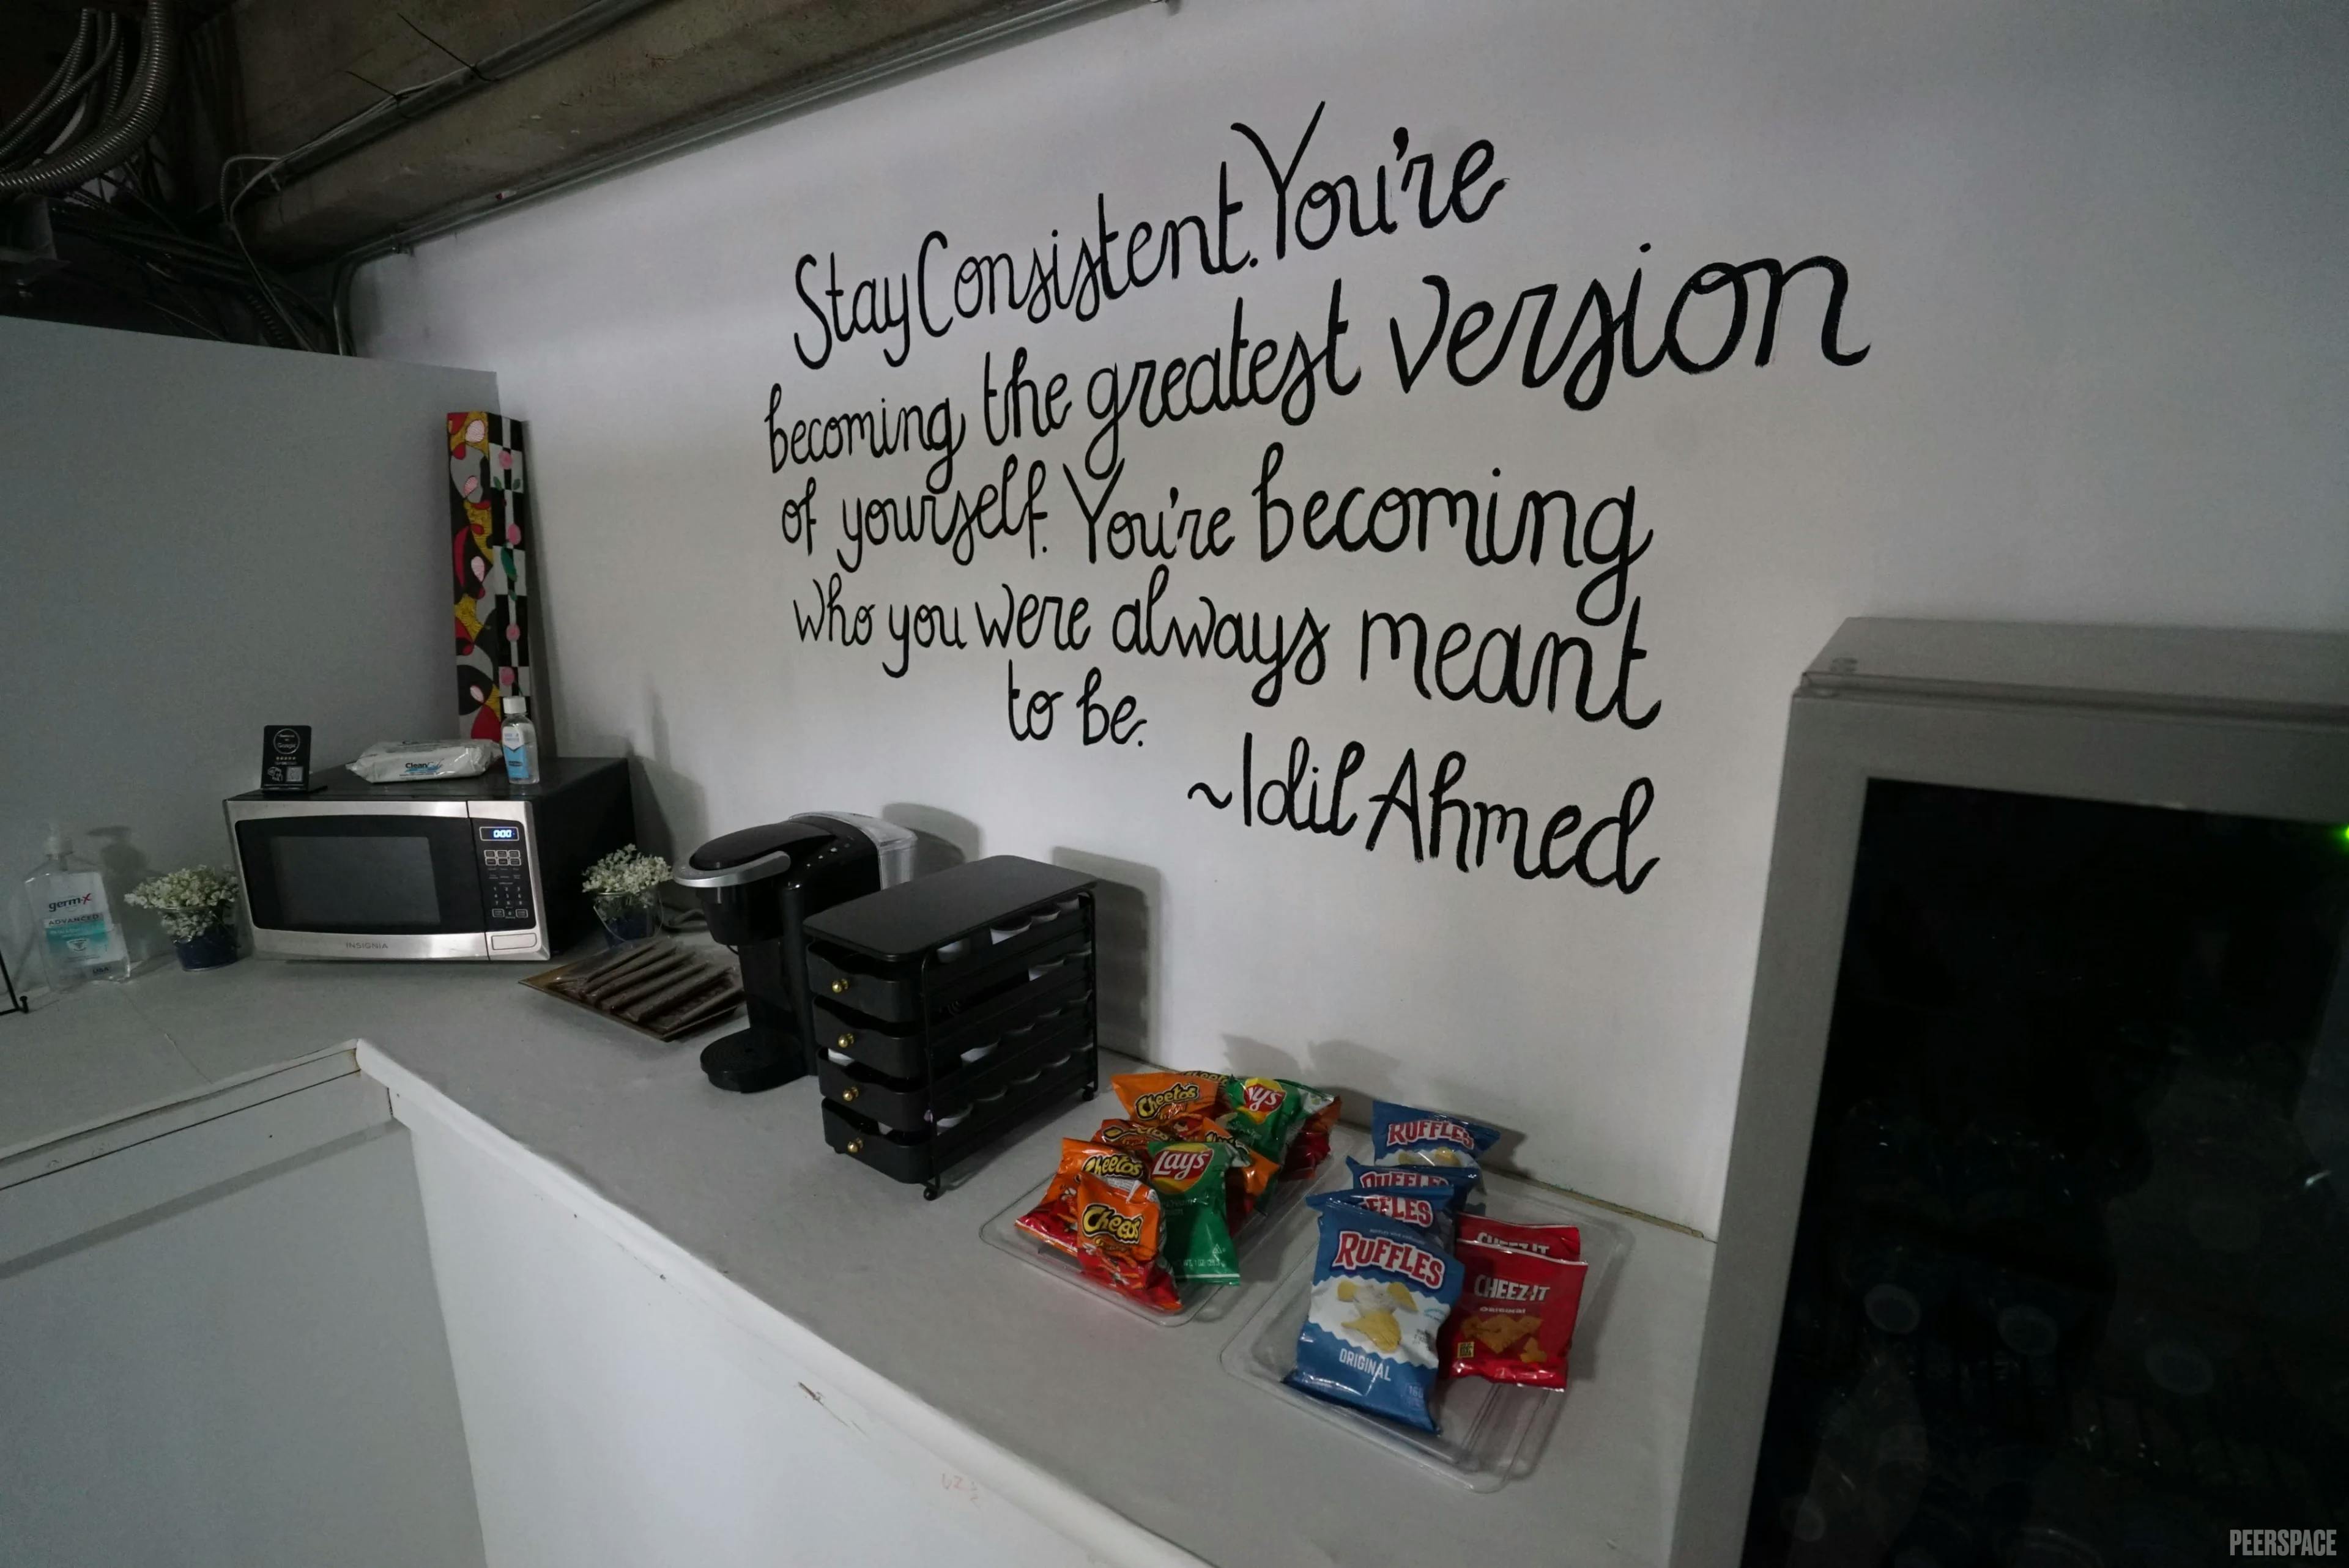 Stay Consistent. You're
becoming the greatest version
of yourself. You're becoming
who you were always meant
to be.
~Idil Ahmed
Google
Clean
germ-x
ADVANCED
000
INSIGNIA
Cheetos
Lay's
Cheetos
Lay's
Cheetos
RUFFLES
RUFFLES
RUFFLES
ORIGINAL
CHEEZ-IT
CHEEZ-IT
ORIGINAL
PEERSPACE